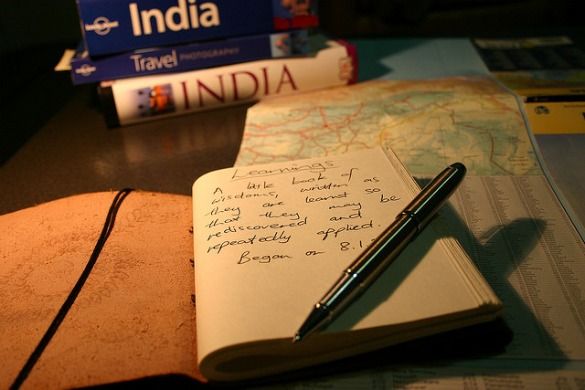 lonely planet
India
lonely planet
Travel PHOTOGRAPHY
INDIA
Learnings
A little book of
wisdoms, written as
they are learnt so
that they may be
rediscovered and
repeatedly applied.
Began on 8.1.